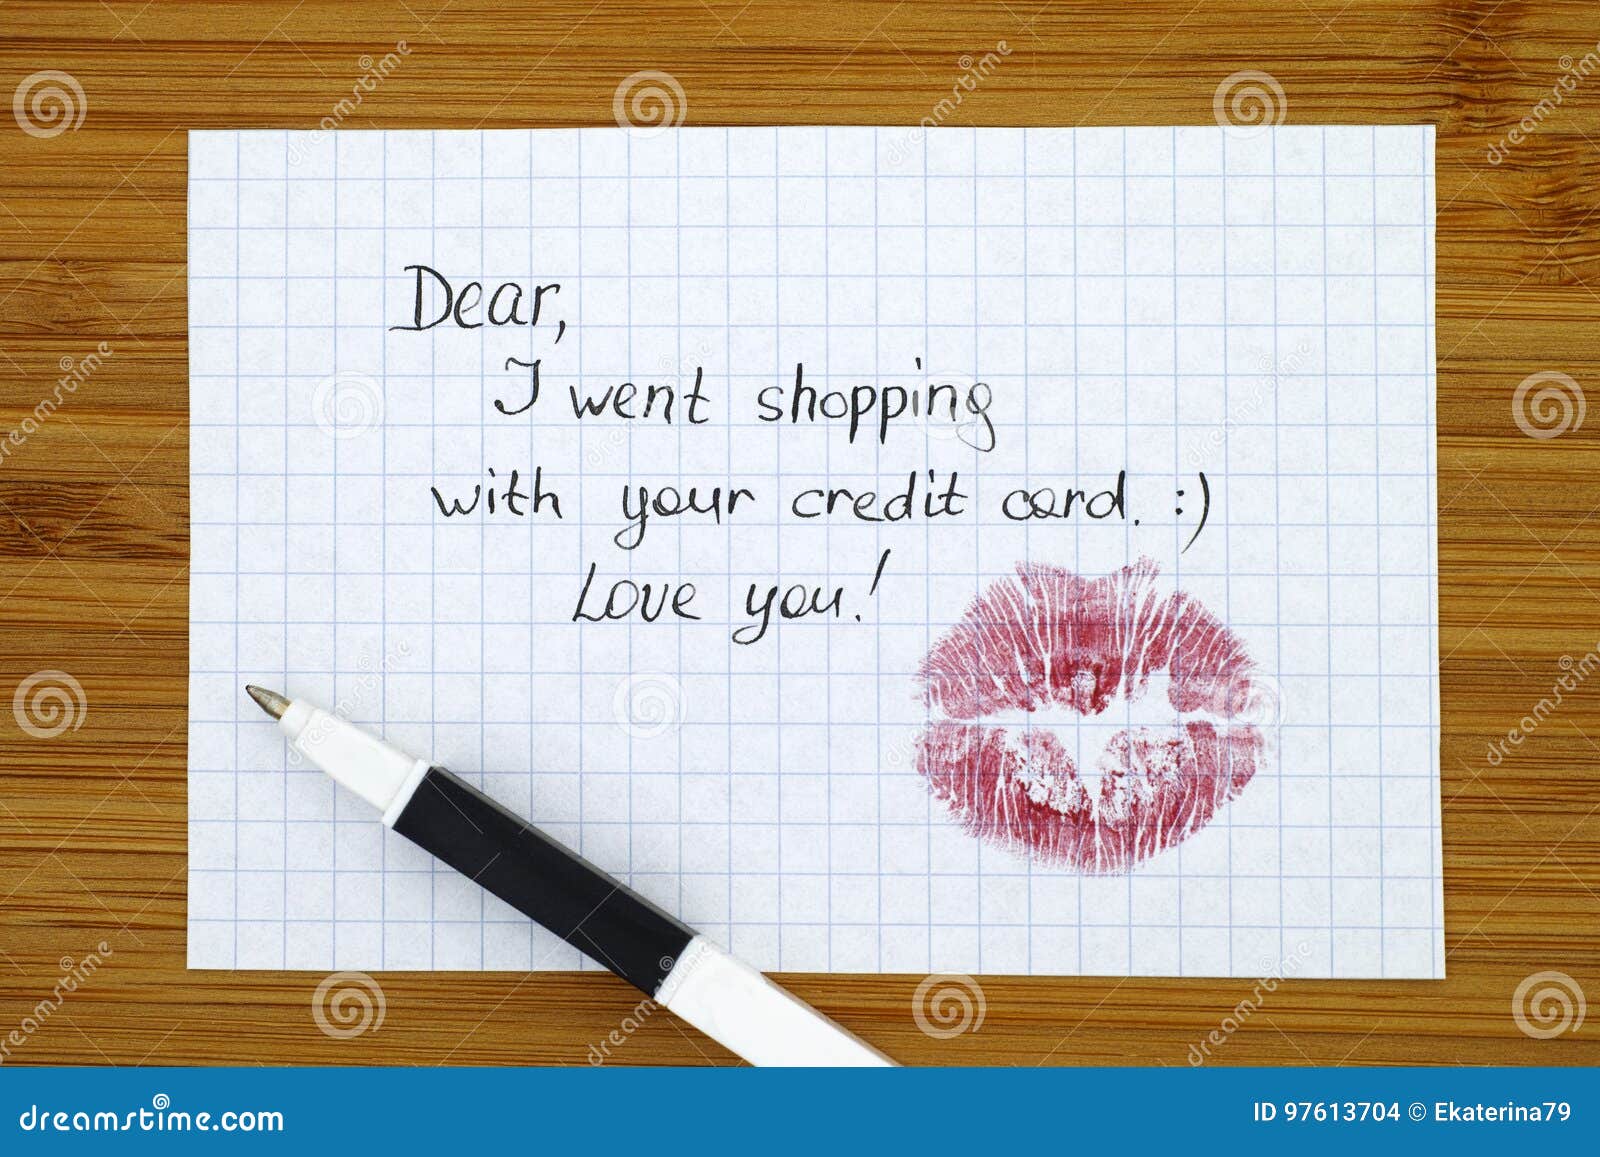 Dear,
I went shopping
with your credit card. :)
Love you!
dreamstime.com
ID 97613704 © Ekaterina79